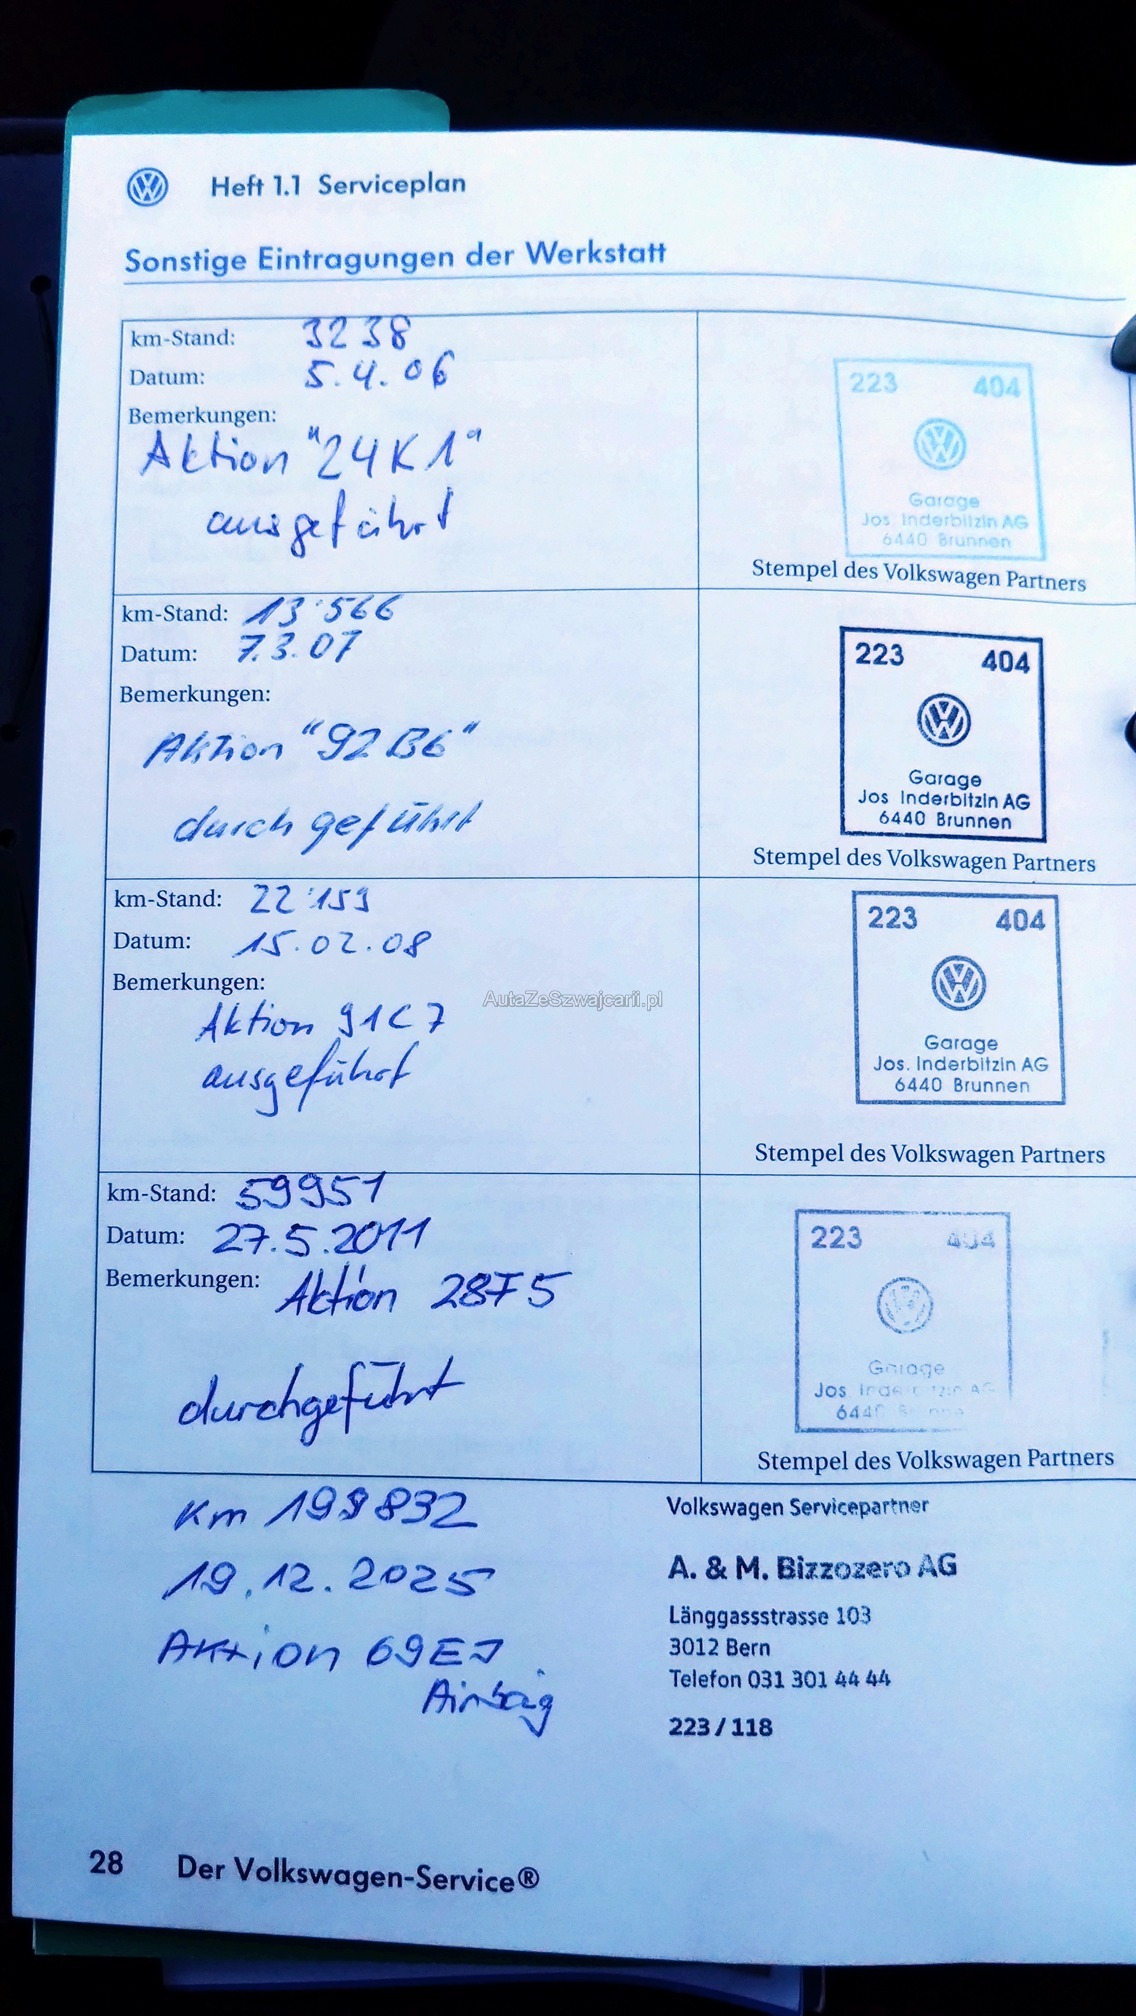 Heft 1.1 Serviceplan
Sonstige Eintragungen der Werkstatt
km-Stand: 3238
Datum: 5.4.06
Bemerkungen:
Aktion "24K1"
ausgeführt
223 404
Garage
Jos. Inderbitzin AG
6440 Brunnen
Stempel des Volkswagen Partners
km-Stand: 13'566
Datum: 7.3.07
Bemerkungen:
Aktion "92B6"
durchgeführt
223 404
Garage
Jos. Inderbitzin AG
6440 Brunnen
Stempel des Volkswagen Partners
km-Stand: 22'159
Datum: 15.02.08
Bemerkungen:
Aktion 91C7
ausgeführt
223 404
Garage
Jos. Inderbitzin AG
6440 Brunnen
Stempel des Volkswagen Partners
AutaZeSzwajcarii.pl
km-Stand: 59951
Datum: 27.5.2011
Bemerkungen: Aktion 28F5
durchgeführt
223 404
Garage
Jos.
Stempel des Volkswagen Partners
Km
19.12.2025
Aktion 69EJ
Airbag
Volkswagen Servicepartner
A. & M. Bizzozero AG
Länggassstrasse 103
3012 Bern
Telefon 031 301 44 44
223 / 118
28 Der Volkswagen-Service®